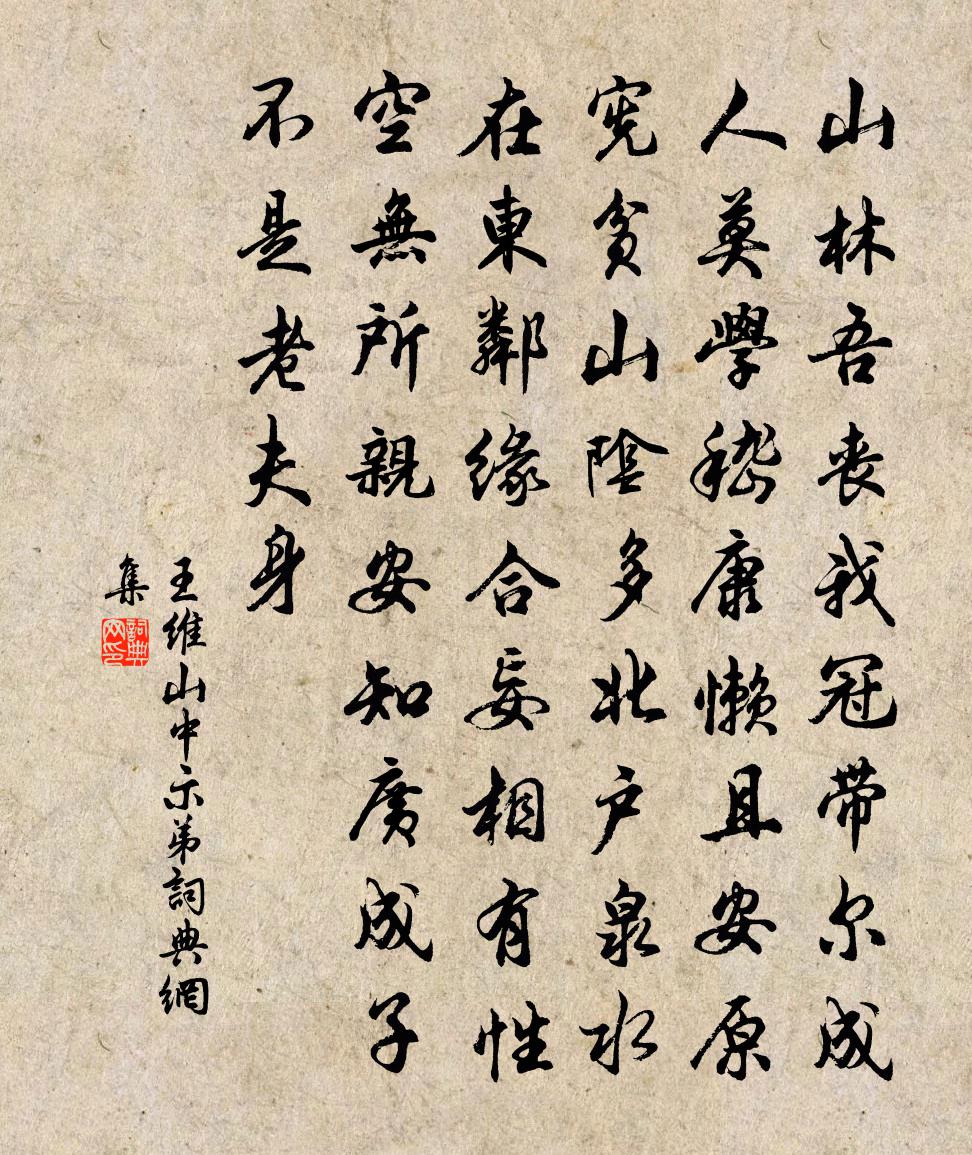 山林吾丧我冠带尔成
人莫學嵇康懒且安原
宪贫山陰多北户泉水
在東鄰缘合妄相有性
空無所親安知廣成子
不是老夫身
王维山中示弟詞典網
集
詞典网印